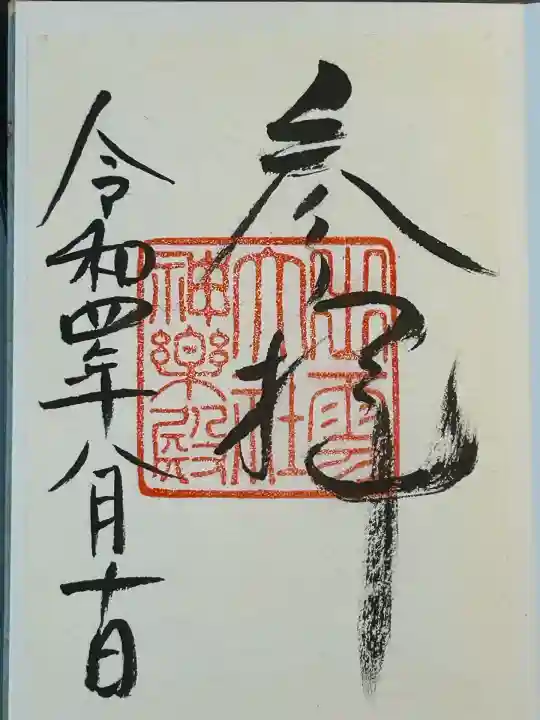 参拝
出雲
大社
神楽殿
令和四年八月十日